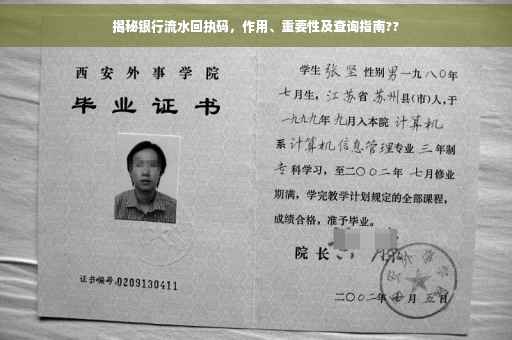 揭秘银行流水回执码，作用、重要性及查询指南??
西安外事学院
毕业证书
证书编号:0209130411
学生 张坚 性别 男 一九八〇年
七月生，江苏省 苏州县(市)人,于
一九九九年 九月入本院 计算机
系 计算机信息管理专业 三 年制
专 科学习，至二〇〇二年 七月修业
期满，学完教学计划规定的全部课程，
成绩合格，准予毕业。
院 长
二〇〇二年 月 五日